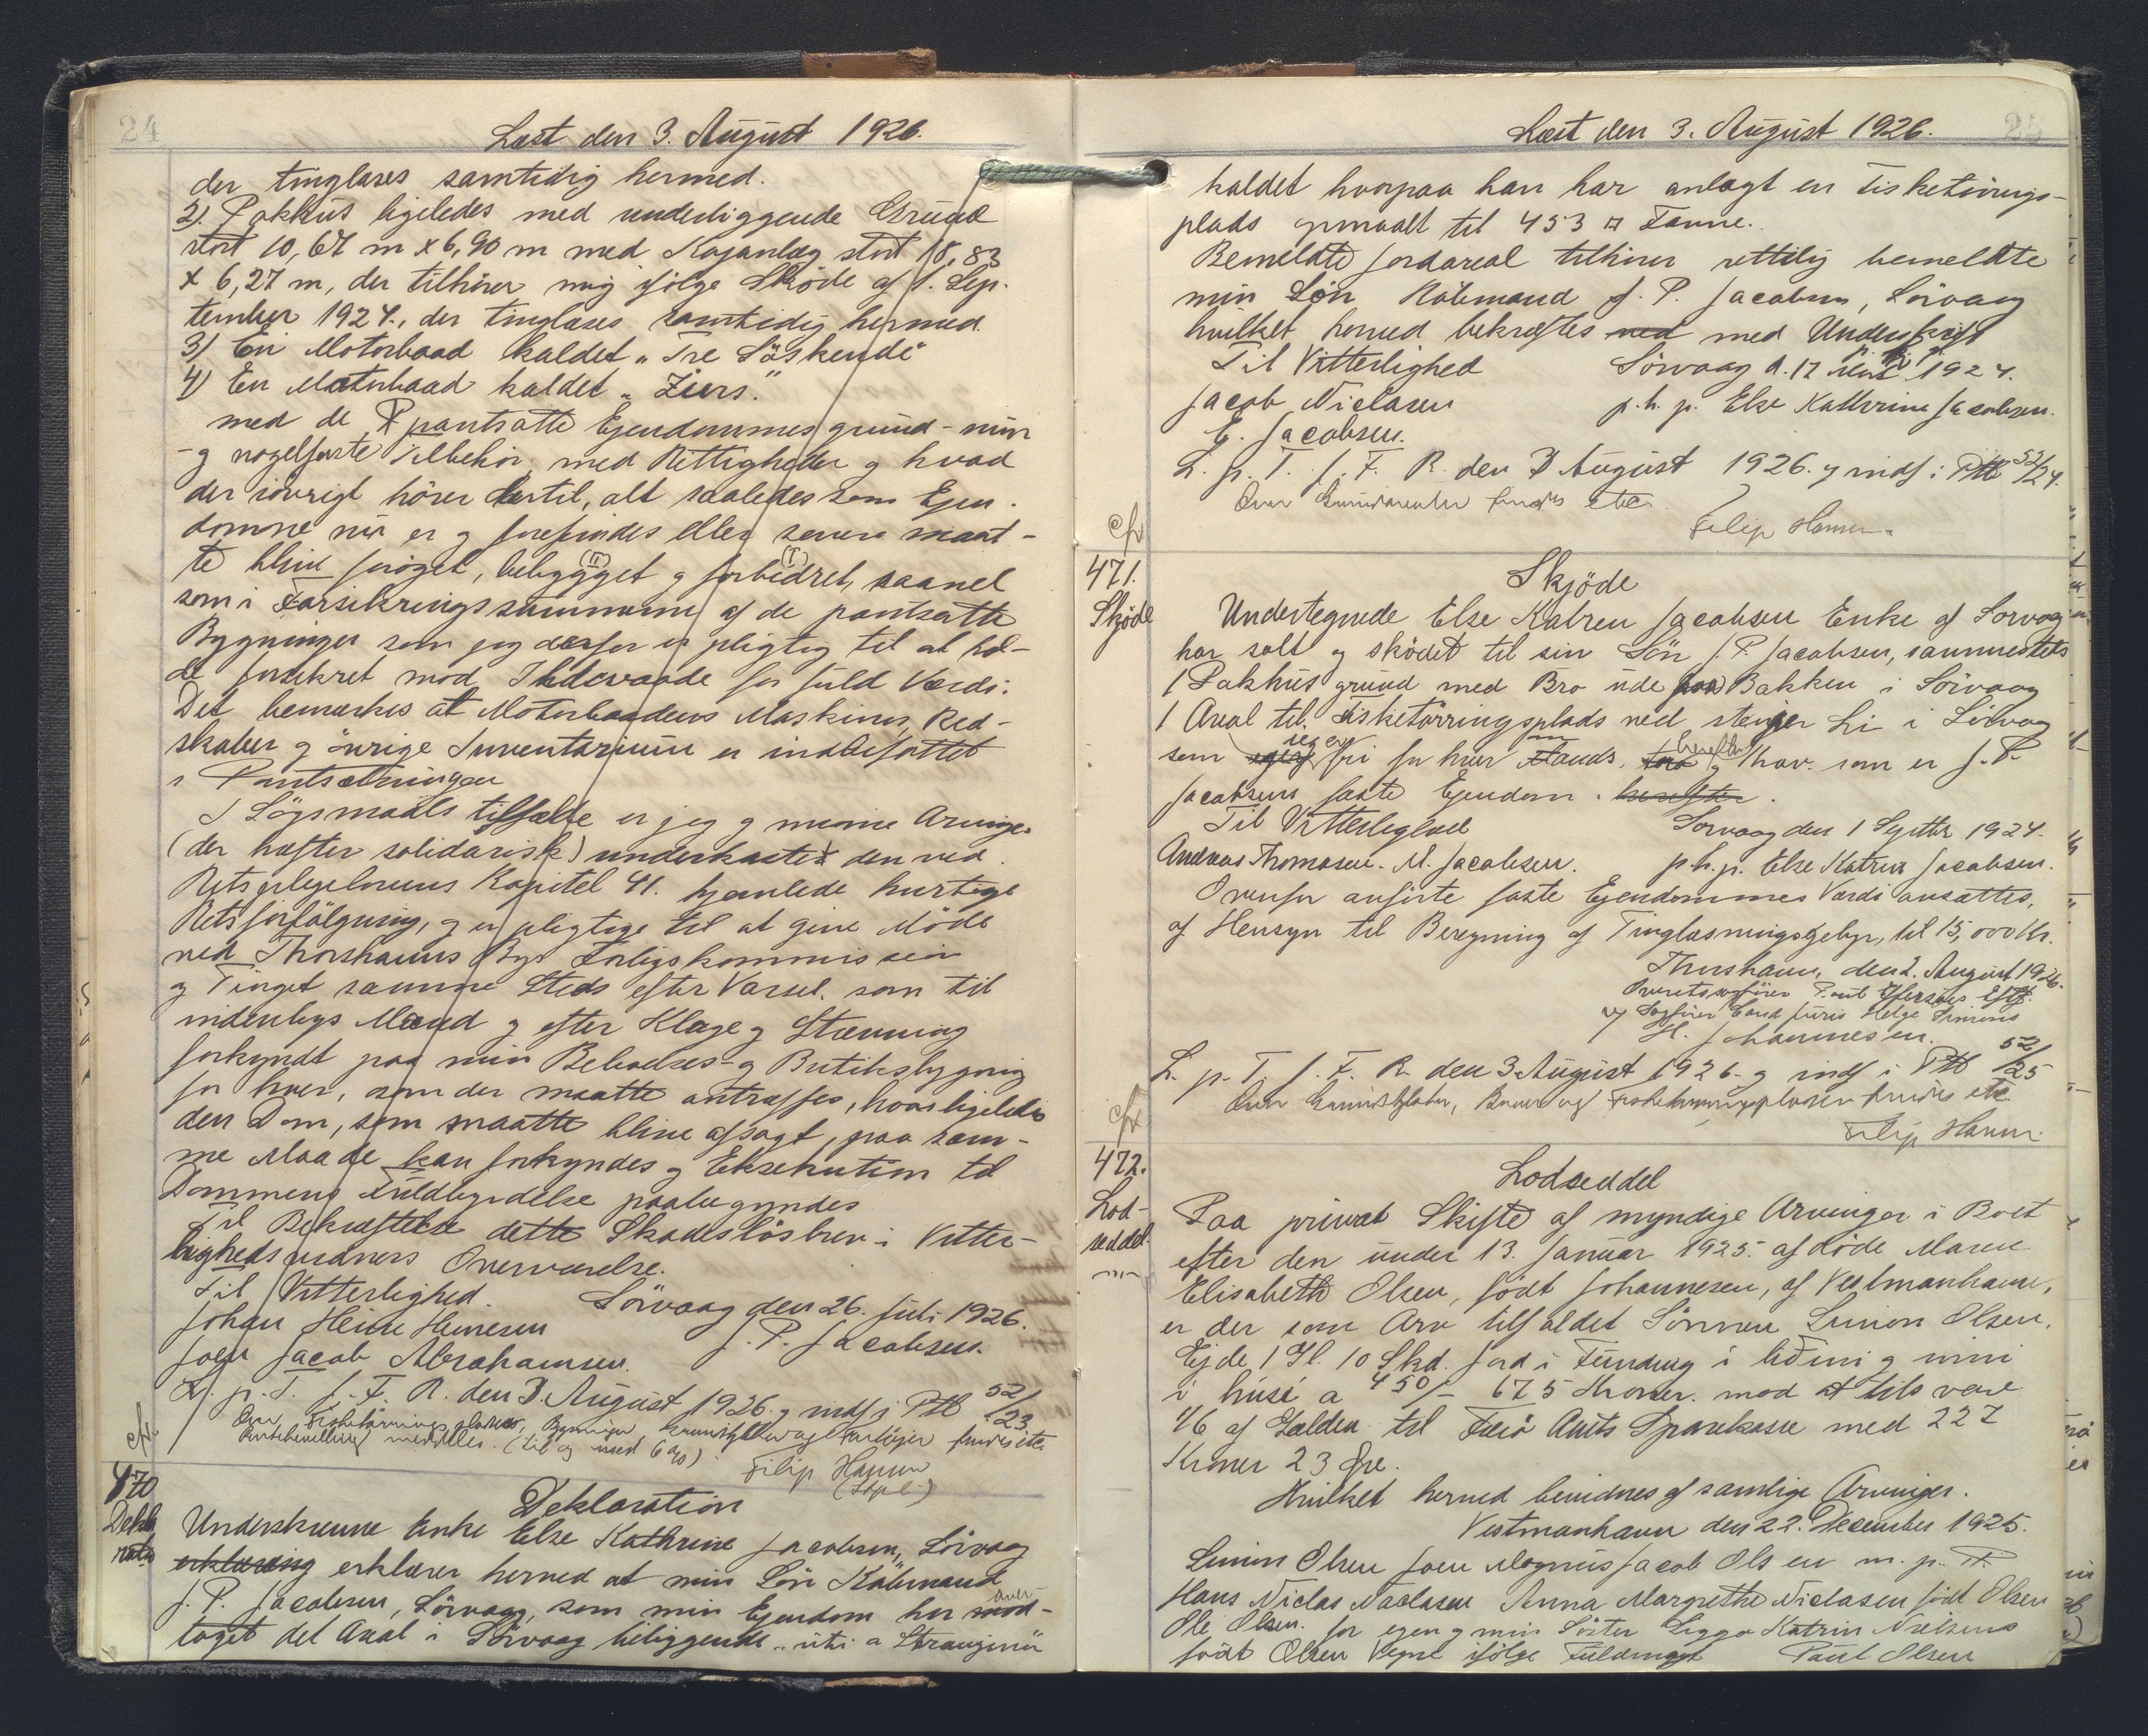 24
Læst den 3. August 1926.
der tinglæses samtidig hermed.
2) Pakhus ligeledes med underliggende Grund
stort 10,67 m x 6,90 m med Kajanlæg stort 18,83
x 6,27 m, der tilhører mig ifølge Skøde af 1. Sep-
tember 1924., der tinglæses samtidig hermed.
3) En Motorbaad kaldet "Tre Söskende"
4) En Motorbaad kaldet "
med de pantsatte Ejendommes grund- mur
- og nagelfaste Tilbehör, med Rettigheder og hvad
der iövrigt hörer dertil, alt saaledes som Ejen-
domme nu er og forefindes eller senere maat-
te blive foröget, bebygget og forbedret, saavel
som i Forsikringssummerne af de pantsatte
Bygninger som jeg derfor er pligtig til at hol-
de forsikret mod Ildsvaade for fuld Værdi.
Det bemærkes at Motorbaadens Maskiner, Red-
skaber og övrige Inventarium er indbefattet
i Pantsætningen
I Lögsmaals tilfælde er jeg og mine Arvinger
(der hæfter solidarisk) underkastet den ved
Retsplejelovens Kapitel 41. hjemlede hurtige
Retsforfölgning, og er pligtige til at give Möde
ved Thorshavns Bys Forligskommission
og Tinget samme Steds efter Varsel som til
indenbys Mænd og efter Klage og Stævning
forkyndt paa min Beboelses- og Butiksbygning
for hver, som der maatte antræffes, hvor ligeledes
den Dom, som maatte blive afsagt, paa sam-
me Maade kan forkyndes og Eksekution til
Dommens Fuldbyrdelse paabegyndes
Til Bekræftelse dette Skadeslösbrev i Vitter-
lighedsvidners Overværelse.
Til Vitterlighed. Sörvaag den 26. Juli 1926.
Johan Heine Heinesen J. P. Jacobsen.
Joen Jacob Abrahamsen.
L. p. T. f. F. R. den 3. August 1926. og indf i Ptb 52/23
Filip Hansen
470
Dekla
ration
Deklaration
Underskrevne Enke Else Kathrine Jacobsen, Sörvaag
erklæring erklærer herved at min Sön Köbmand
J. P. Jacobsen, Sörvaag, som min Ejendom har over-
taget det Areal i Sörvaag beliggende
25
Læst den 3. August 1926.
kaldet hvorpaa han har anlagt en Fisketörrings-
plads opmaalt til 453 □ Favne.
Bemeldte Jordareal tilhörer rettelig bemeldte
min Sön Köbmand J. P. Jacobsen, Sörvaag
hvilket herved bekræftes ved med Underskrift
Til Vitterlighed Sörvaag d. 17 1924.
Jacob Niclasen p.h.p. Else Kathrine Jacobsen.
E. Jacobsen.
L. p. T. f. F. R. den 3 August 1926. og indf i Ptb 52/24.
Filip Hansen
cfr
471.
Skjöde
Skjöde
Undertegnede Else Katren Jacobsen Enke af Sorvaag
har solt og sködet til sin Sön J. P. Jacobsen, sammesteds
1 Pakhus grund med Bro ude paa Bakken i Sörvaag
1 Areal til Fisketörringsplads ved
som fri for hver Mands, og Krav. som er J. P.
Jacobsens faste Ejendom. herefter.
Til Vitterlighed Sorvaag den 1 Septbr 1924.
Andreas Thomasen. M. Jacobsen. p.h.p. Else Katrin Jacobsen.
Ovenfor anförte faste Ejendommes Værdi ansættes,
af Hensyn til Beregning af Tinglæsningsgebyr, til 15,000 Kr.
Thorshavn, den 2. August 1926.
H. Johannesen.
L. p. T. f. F. R. den 3 August 1926. og indf i Ptb 52/25
Filip Hansen
cfr
472.
Lod-
seddel.
Lodseddel
Paa privat Skifte af myndige Arvinger i Boet
efter den under 13. Januar 1925. aföde Maren
Elisabeth Olsen, födt Johannesen, af Vestmanhavn,
er der som Arv tilfaldet Sönnen Simon Olsen,
Ejde, 1 Gl. 10 Skd. Jord i
i húsi a 450/- 675 Kroner. mod at tilsvare
1/6 af Gælden til Færö Amts Sparekasse med 227
Kroner 23 Øre.
Hvilket herved bevidnes af samtlige Arvinger.
Vestmanhavn den 22. December 1925.
Simon Olsen Joen Magnus Jacob Olsen m. p. P.
Hans Niclas Niclasen Anna Margrethe Niclasen födt Olsen
Ole Olsen. for egen og min Söster Sigga Katrin Nielsens
födt Olsen Vegne ifölge Fuldmagt Poul Olsen